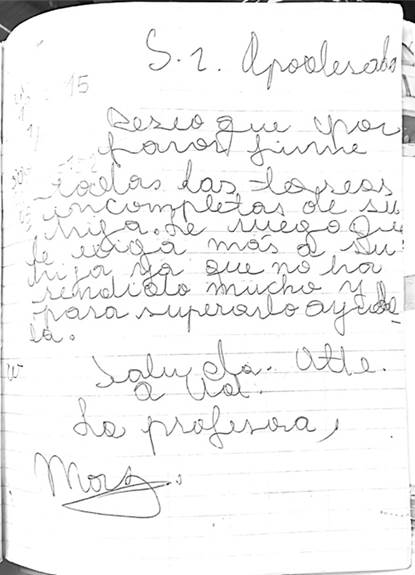 S.r. Apoderado
15
Deseo que por
favor firme
todas las tareas
incompletas de su
hija. Le ruego que
le exiga más a su
hija ya que no ha
rendido mucho y
para superarlo ayúde_
la.
Saluda. Atte.
a Ud.
La profesora,